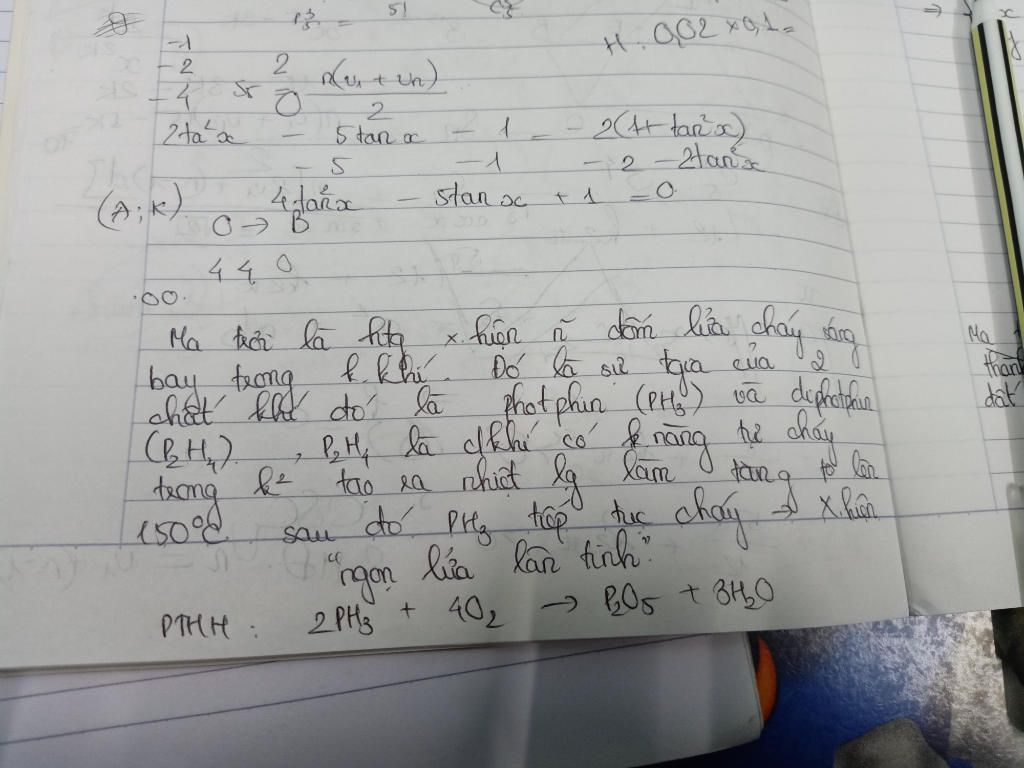 H: 0,02 × 0,1 =
-1
-2
2
-4
n(u₁ + uₙ)
0
2
2ta²x - 5tan x - 1 = - 2(1+ tan²x)
- 5 -1 - 2 - 2tan²x
(A; K)
4tan²x - 5tan x + 1 = 0
0 → B
4 4 0
.00.
Ma trơi là htg x.hiện ~ đốm lửa cháy sáng
bay trong k.khí. Đó là sự tạo của 2
chất khí đó là photphin (PH₃) và diphotphin
(P₂H₄). , P₂H₄ là khí có k năng tự cháy
trong k² tạo ra nhiệt lg làm tăng t° lên
150°C sau đó PH₃ tiếp tục cháy → x.hiện
"ngọn lửa lân tinh"
PTHH: 2PH₃ + 4O₂ → P₂O₅ + 3H₂O
Ma
thành
đất